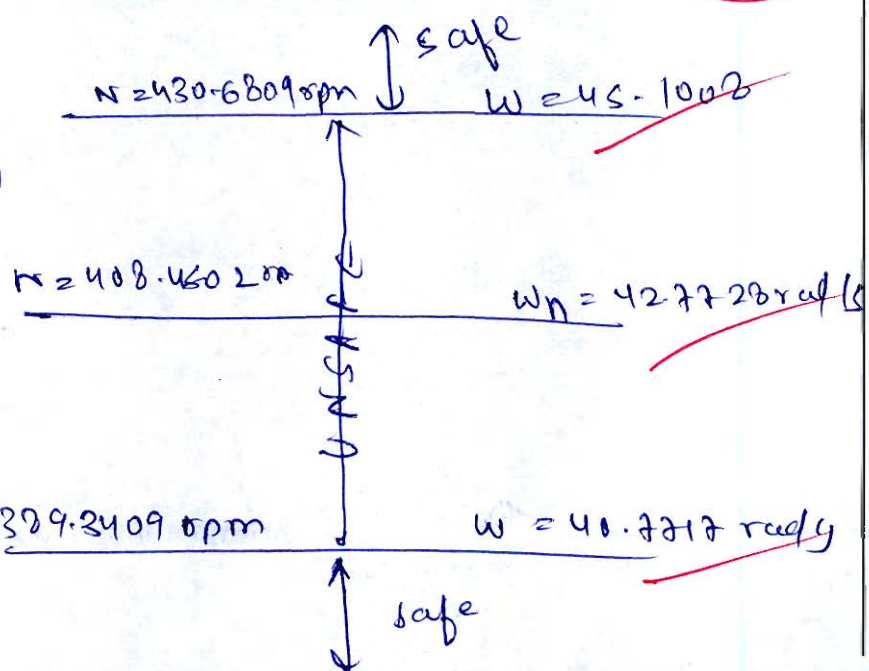 safe
N=430.6809rpm W=45.1008
N=408.4502 Wn = 42.7728 rad/s
UNSAFE
389.3409 rpm W = 40.7717 rad/s
safe